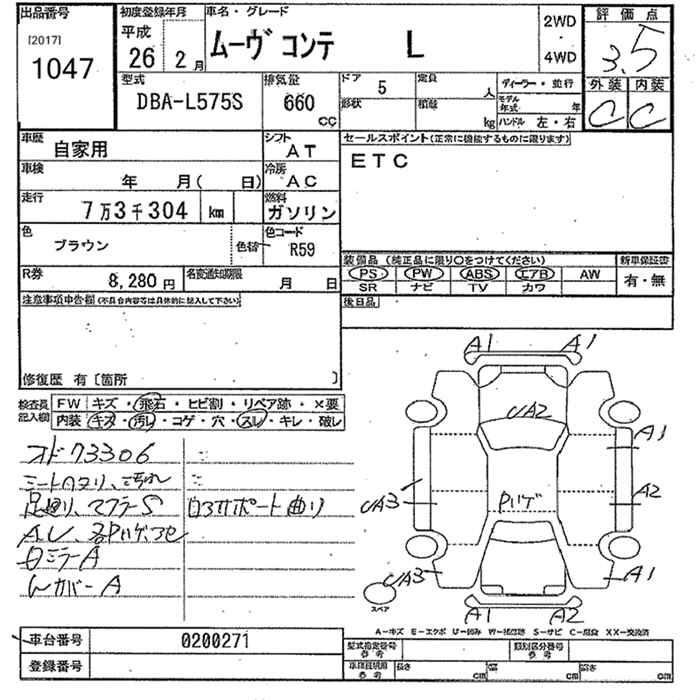 出品番号
[2017]
1047
初度登録年月
平成
26年 2月
車名・グレード
ムーヴ コンテ L
2WD
4WD
評価点
3.5
外装 内装
C C
型式
DBA-L575S
排気量
660
cc
ドア 5
形状
定員 人
積載 kg
ディーラー・並行
モデル年式 年
ハンドル 左・右
車歴
自家用
シフト
AT
車検
年 月( 日)
冷房
AC
走行
7万3千304 km
燃料
ガソリン
色
ブラウン
色替
色コード
R59
R券
8,280円
名変通知期限
月 日
セールスポイント(正常に機能するものに限ります)
ETC
装備品 (純正品に限り○をつけてください)
新車保証書
PS PW ABS エアB AW
有・無
SR ナビ TV カワ
後日品
注意事項申告欄(不具合内容等は具体的に記入して下さい)
修復歴 有〔箇所 〕
検査員記入欄
FW キズ・飛石・ヒビ割・リペア跡・×要
内装 キズ・汚れ・コゲ・穴・スレ・キレ・破レ
オド73306
足廻り、マフラーS
ロアサポート曲り
ミラーA
カバーA
A1 A1
UA2
A1
A2
UA3
UA3
A1
A1 A2
スペア
A-キズ E-エクボ U-凹み W-補修跡 S-サビ C-腐食 XX-交換済
車台番号
0200271
登録番号
型式指定番号
参考
類別区分番号
参考
車検証説明
参考
長さ cm 幅 cm 高さ cm